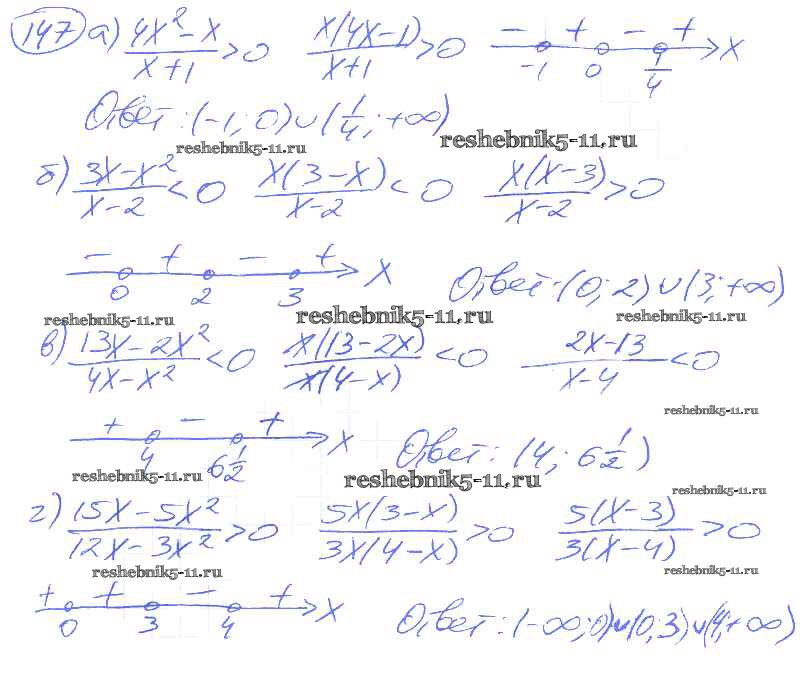 147 а) (4x² - x)/(x+1) > 0   x(4x-1)/(x+1) > 0   - + - + x
-1 0 1/4
Ответ: (-1; 0) ∪ (1/4; +∞)
reshebnik5-11.ru reshebnik5-11.ru
б) (3x-x²)/(x-2) < 0   x(3-x)/(x-2) < 0   x(x-3)/(x-2) > 0
- + - + x
0 2 3   Ответ: (0; 2) ∪ (3; +∞)
reshebnik5-11.ru reshebnik5-11.ru reshebnik5-11.ru
в) (13x-2x²)/(4x-x²) < 0   x(13-2x)/x(4-x) < 0   (2x-13)/(x-4) < 0
reshebnik5-11.ru
+ - + x
4 6 1/2   Ответ: (4; 6 1/2)
reshebnik5-11.ru reshebnik5-11.ru reshebnik5-11.ru
г) (15x-5x²)/(12x-3x²) > 0   5x(3-x)/3x(4-x) > 0   5(x-3)/3(x-4) > 0
reshebnik5-11.ru reshebnik5-11.ru
+ + - + x
0 3 4   Ответ: (-∞; 0) ∪ (0; 3) ∪ (4; +∞)